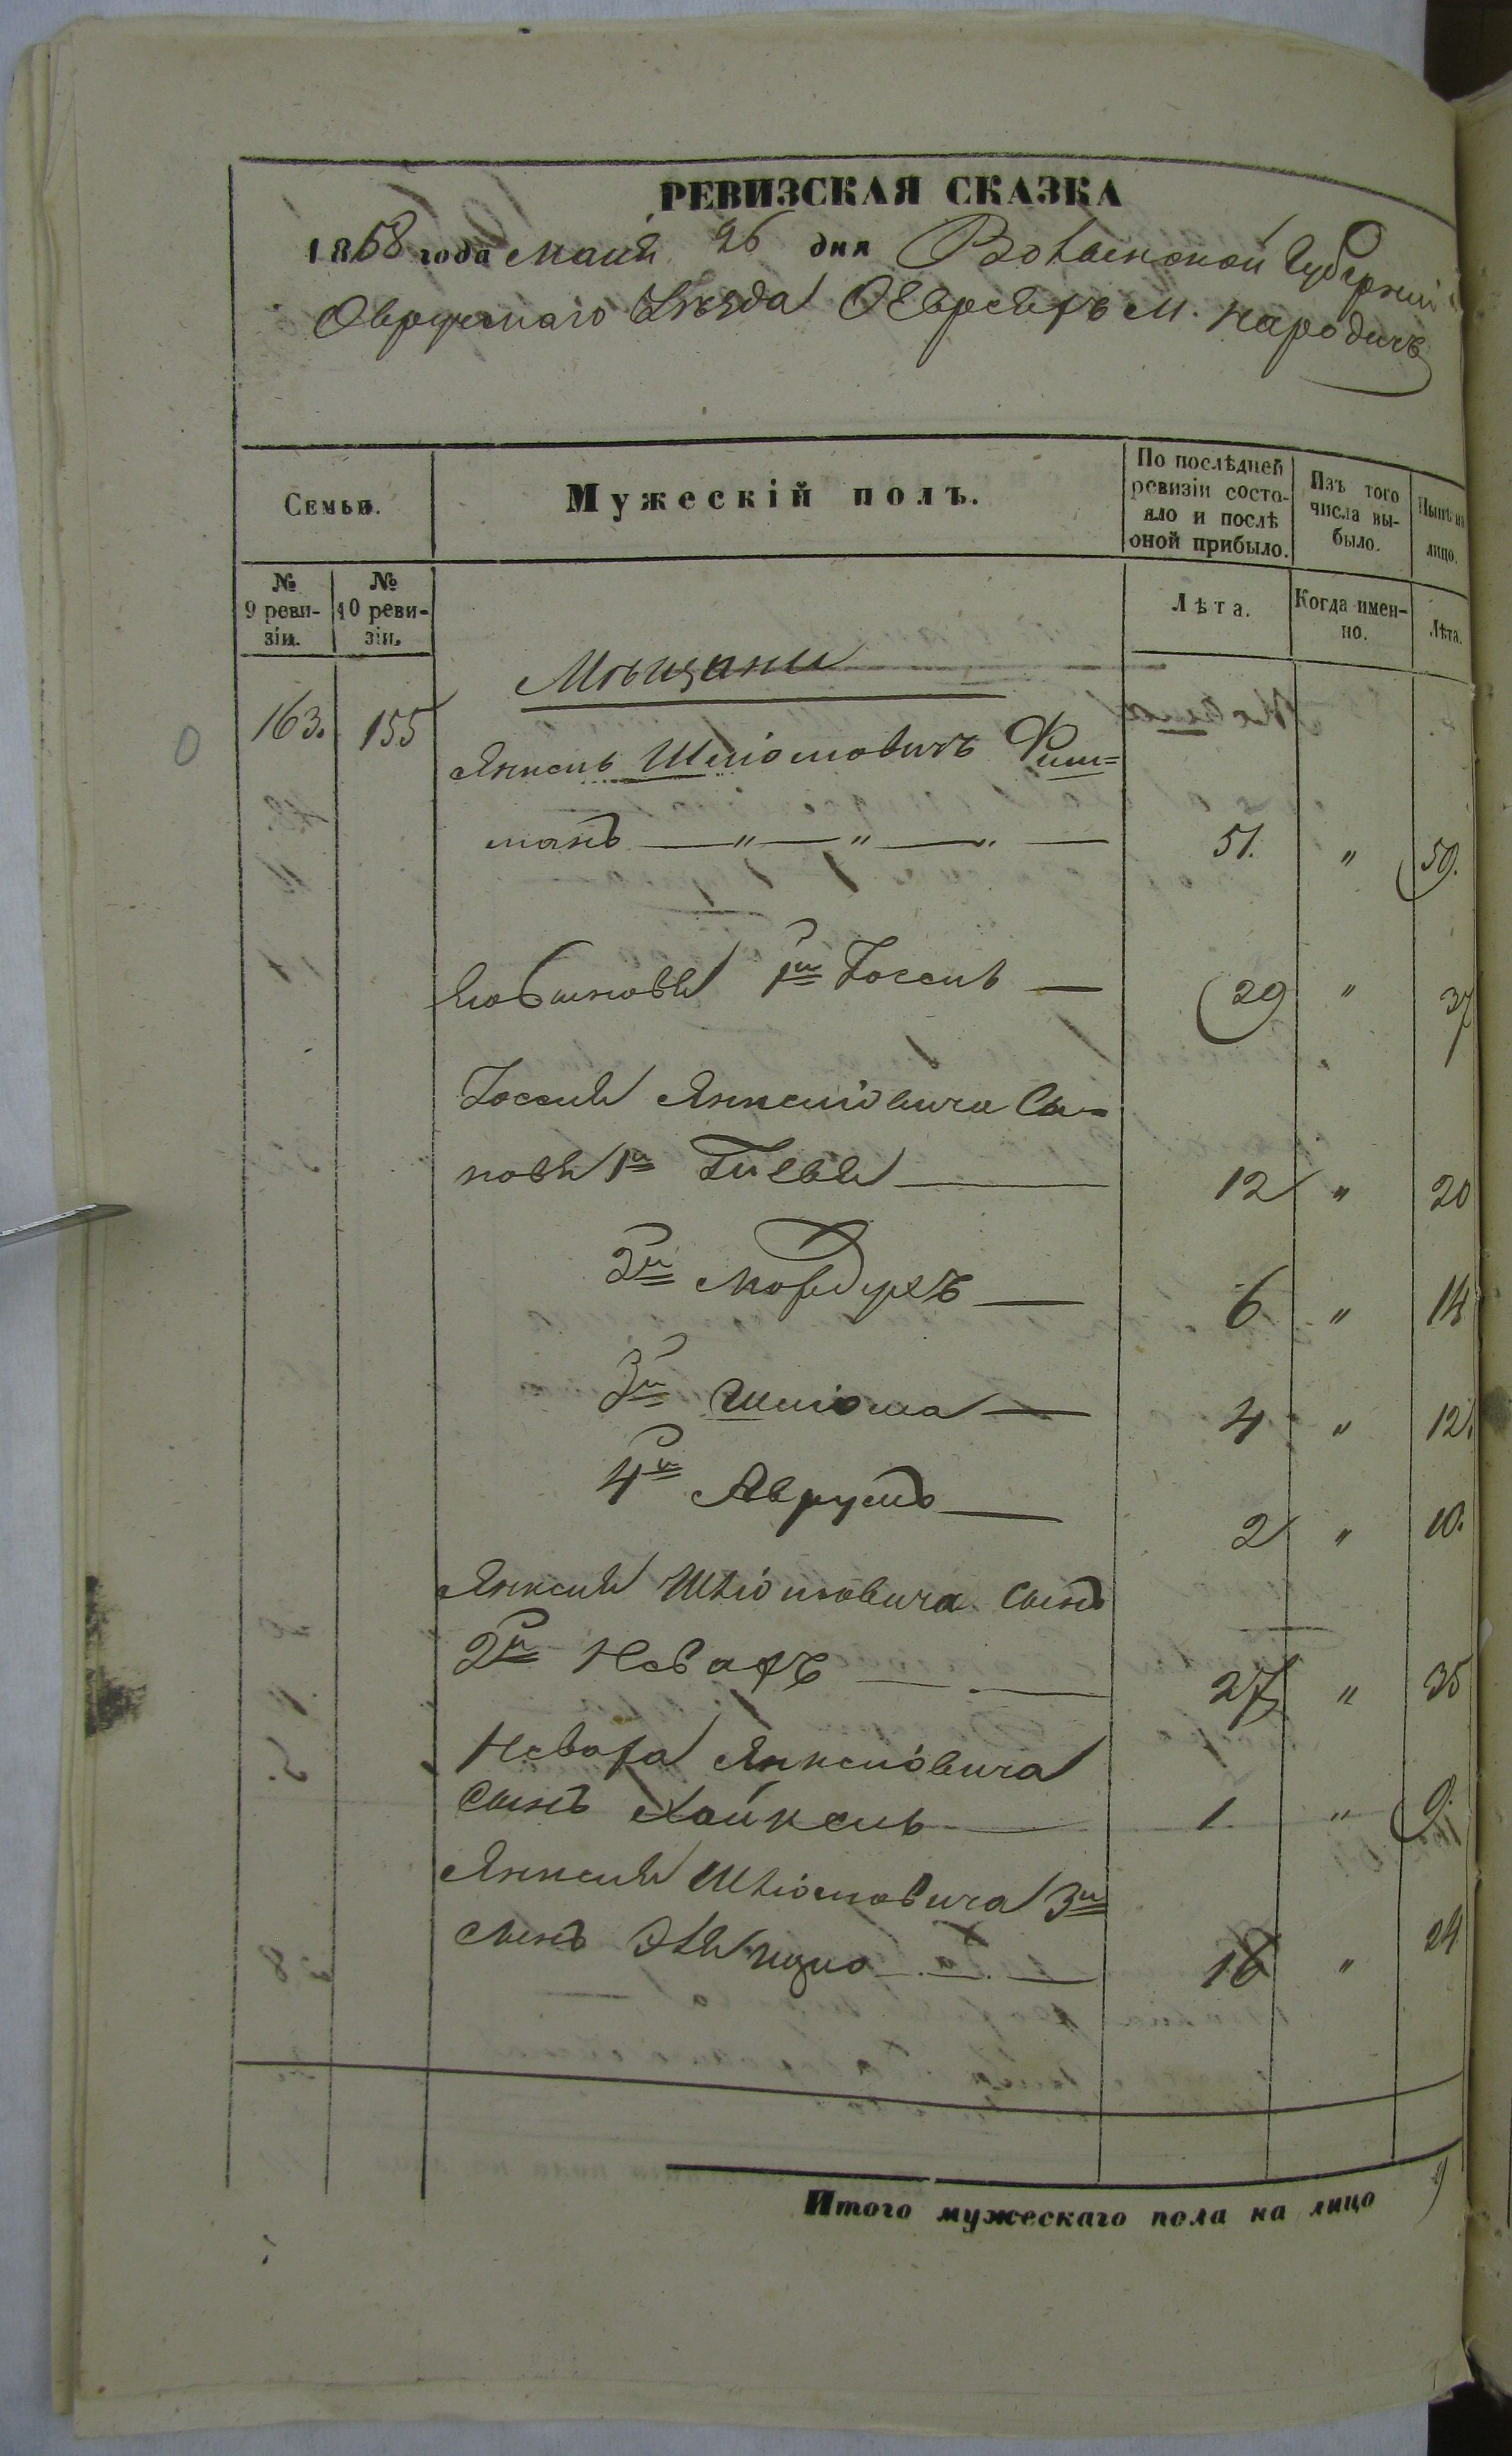 РЕВИЗСКАЯ СКАЗКА
1858 года маия 26 дня Волынской Губернии
Овручскаго Уѣзда О Евреяхъ м. Народичъ
Семьи.
Мужескій полъ.
По послѣдней ревизіи состояло и послѣ оной прибыло.
Изъ того числа выбыло.
Нынѣ на лицо.
№ 9 ревизіи.
№ 10 ревизіи.
Лѣта.
Когда именно.
Лѣта.
Мѣщани
163. 155 Янкель Шліомовичъ Фиш=
манъ — „ — „ — „ — 51. „ 59.
1й Іосель — 29 „ 37
Іоселя Янкеліовича Сы-
новя 1й — 12 „ 20
2й Мордухъ — 6 „ 14
3й Шліома — 4 „ 12.
4й Аврумъ — 2 „ 10.
Янкеля Шліомовича сынъ
2й Невахъ — 27 „ 35
Неваха Янкеліовича
сынъ Хайкель — 1. „ 9.
Янкеля Шліомовича 3й
сынъ — 16 „ 24
Итого мужескаго пола на лицо 9